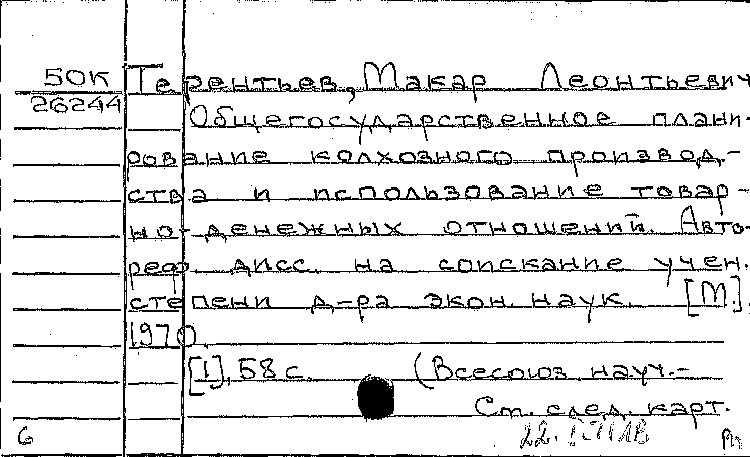 50К Терентьев, Макар Леонтьевич
26244 Общегосударственное плани-
рование колхозного производ-
ства и использование товар-
но-денежных отношений. Авто-
реф. дисс. на соискание учен.
степени д-ра экон. наук. [М.],
1970.
[1], 58 с. (Всесоюз. науч.-
См. след. карт.
6